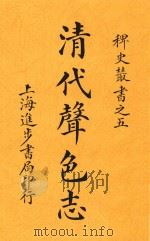 稗史叢書之五
清代聲色志
上海進步書局印行